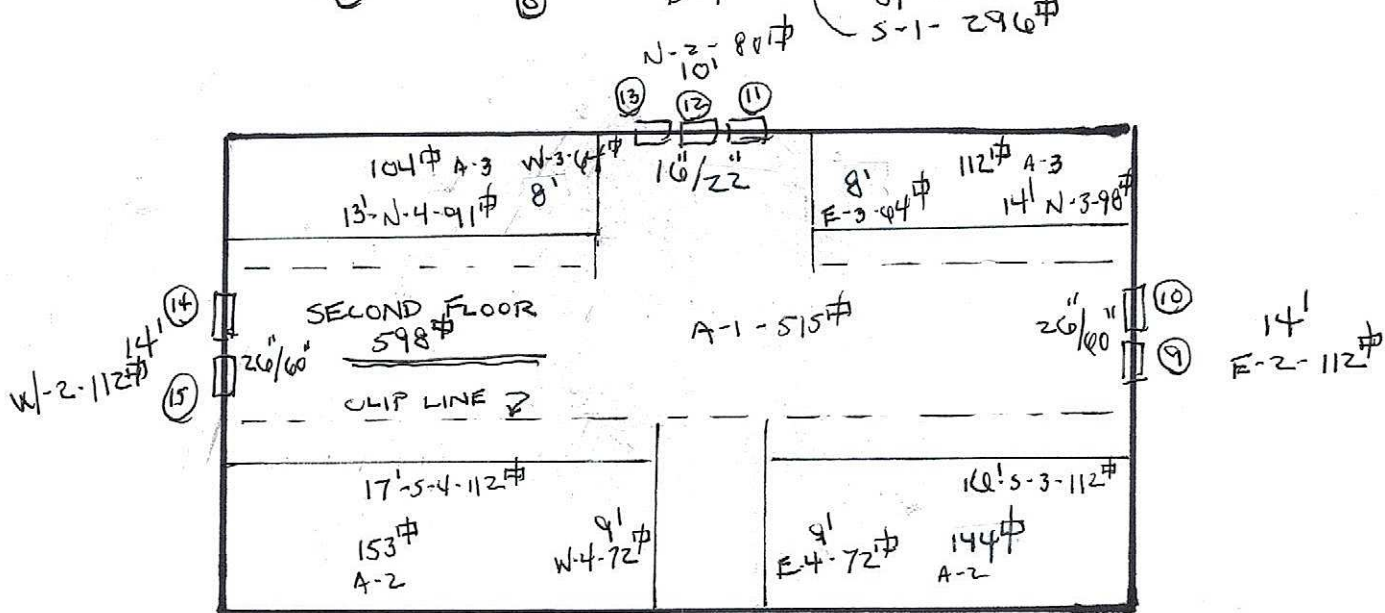 S-1- 296⏍
N-2-80⏍
10'
13 12 11
16"/22"
104⏍ A-3 W-3-64⏍
13'-N-4-91⏍ 8'
8' 112⏍ A-3
E-3-64⏍ 14' N-3-98⏍
14
14'
W-2-112⏍
15
26"/60"
SECOND FLOOR
598⏍
CLIP LINE
A-1-515⏍
26"/60"
10
9
14'
E-2-112⏍
17'-S-4-112⏍
153⏍
A-2
9'
W-4-72⏍
16'-S-3-112⏍
9'
E-4-72⏍
144⏍
A-2